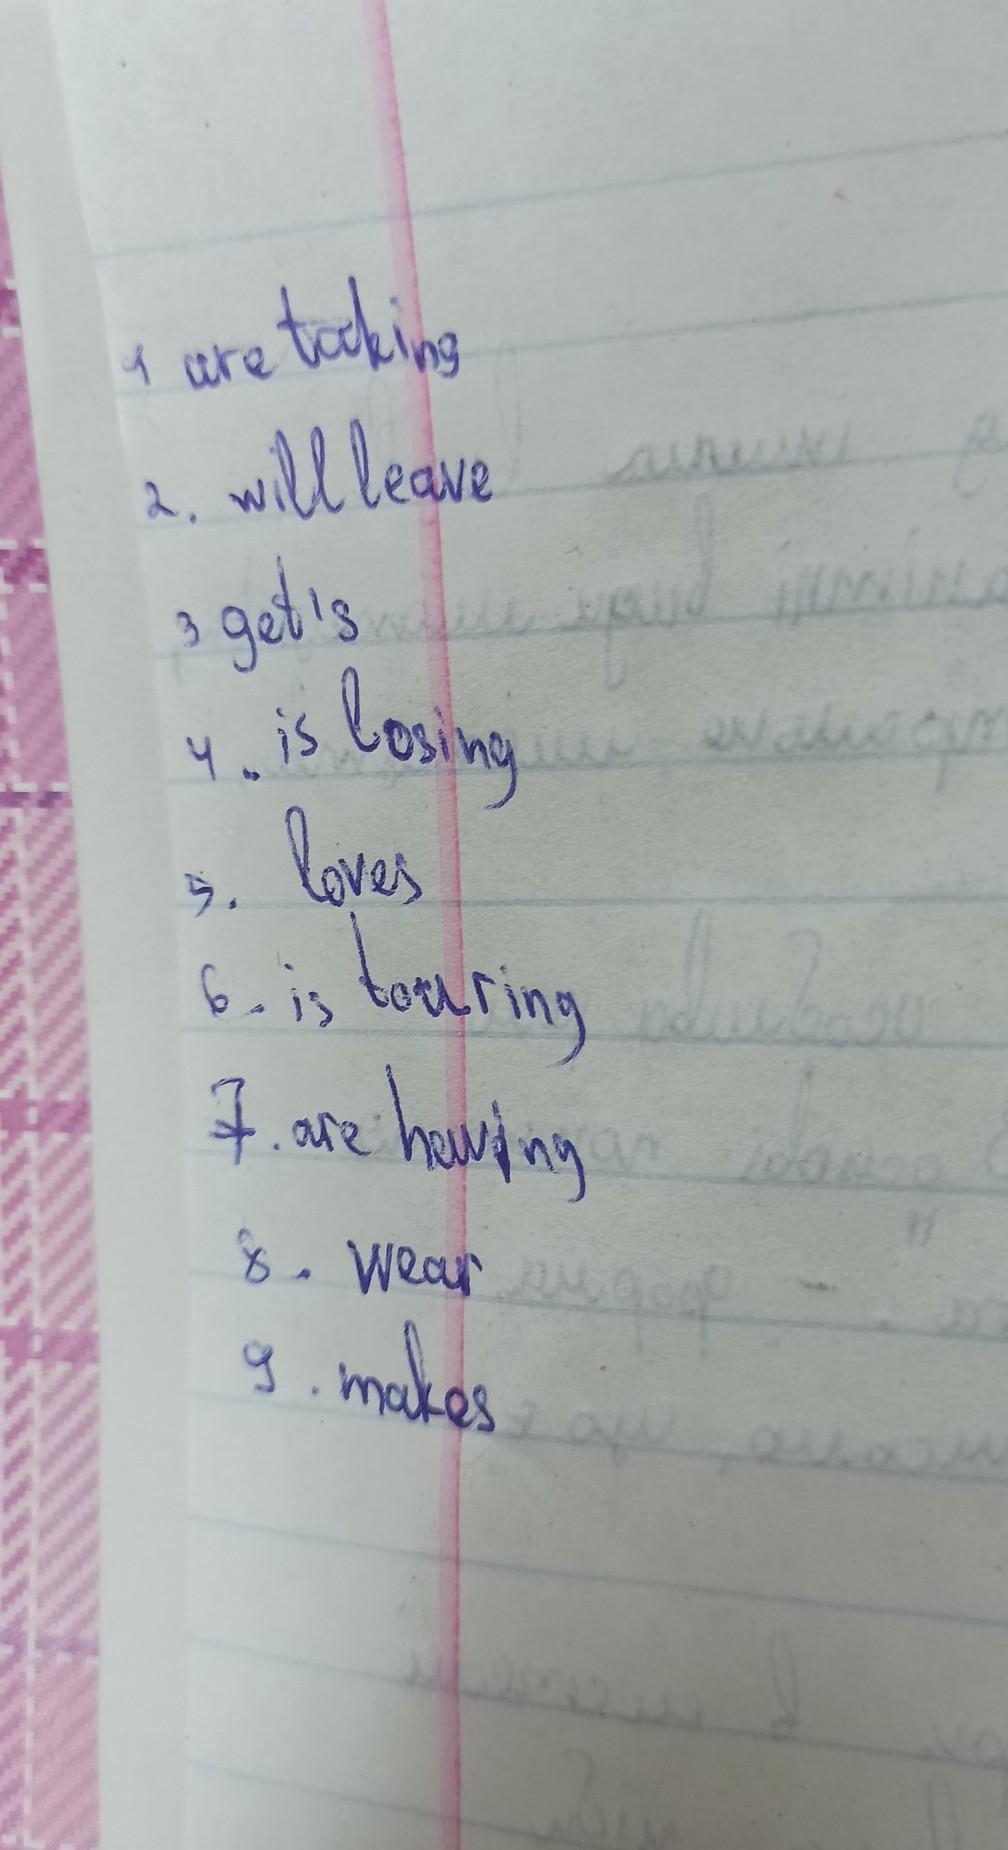 1 are taking
2. will leave
3 get's
4. is losing
5. loves
6. is touring
7. are having
8. wear
9. makes